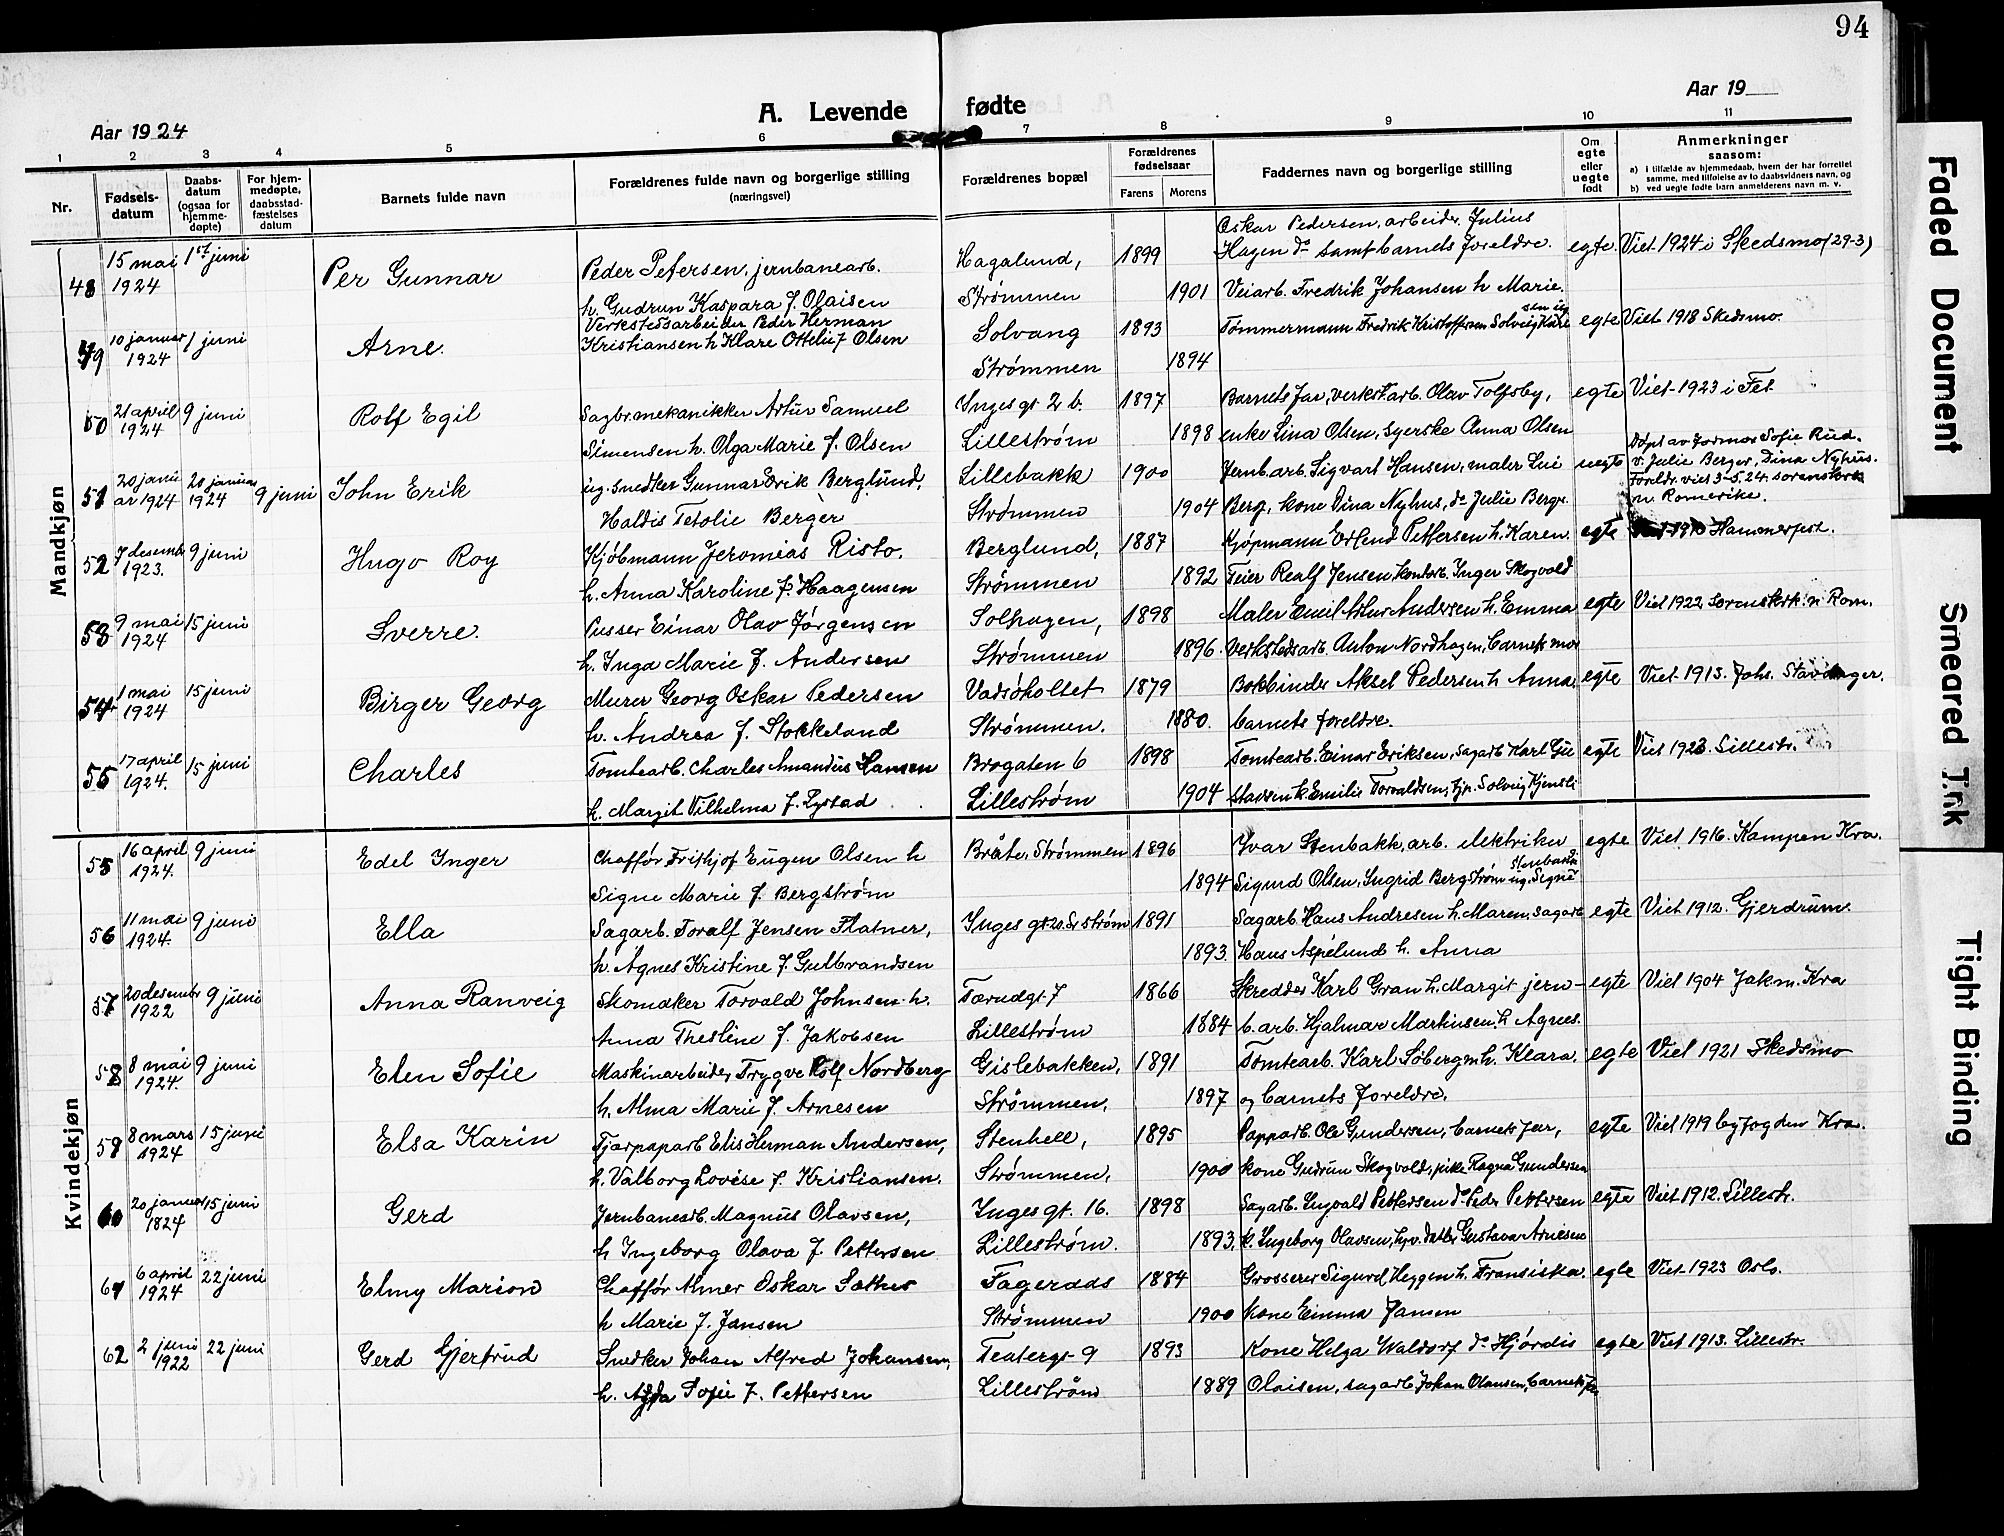 94
Aar 1924
A. Levende fødte
Aar 19
1 2 3 4 5 6 7 8 9 10 11
Nr.
Fødsels-
datum
Daabs-
datum
(ogsaa for
hjemme-
døpte)
For hjem-
medøpte,
daabsstad-
fæstelses
datum
Barnets fulde navn
Forældrenes fulde navn og borgerlige stilling
(næringsvei)
Forældrenes bopæl
Forældrenes
fødselsaar
Farens Morens
Faddernes navn og borgerlige stilling
Om
egte
eller
uegte
født
Anmerkninger
saasom:
a) I tilfælde av hjemmedaab, hvem der har forrettet
samme, med tilføielse av to daabsvidners navn, og
b) ved uegte fødte barn anmelderens navn m. v.
Mandkjøn
Oskar Pedersen, arbeider, Julius
48 15 mai 1ste juni Per Gunnar Peder Petersen, jernbanearb. Hagalund, 1899 Hagen do samt barnets foreldre. egte Viet 1924 i Skedsmo (29-3)
1924 h. Gudrun Kaspara f. Olaisen Strømmen 1901 Veiarb. Fredrik Johansen h Marie.
49 10 januar 1 juni Arne. Verkstedsarbeider Peder Herman Solvang 1893 Tømmermann Fredrik Kristoffersen Solveig Kåre egte Viet 1918 Skedsmo.
1924 Kristiansen h Klare Ottelie f Olsen Strømmen 1894
50 21 april 9 juni Rolf Egil Sagbr.mekanikker Artur Samuel Ynges gt 2 b. 1897 Barnets far, verkst.arb. Olav Tolfsby, egte Viet 1923 i Fet
1924 Simensen h. Olga Marie f. Olsen Lillestrøm 1898 enke Lina Olsen, syerske Anna Olsen
51 20 janu 20 januar 9 juni John Erik ug. Snedker Gunnar Erik Berglund, Lillebakk 1900 Jernb.arb. Sigvart Hansen, maler Lui uegte Døpt av jormor Sofie Rud.
ar 1924 1924 Haldis Tetolie Berger Strømmen 1904 Berg, kone Dina Nyhus, do Julie Berger. v. Julie Berger, Dina Nyhus.
Foreldr. viet 3-5.24. sorenskr.
n. Romerike.
52 7 desembr 9 juni Hugo Roy Kjøbmann Jeremias Risto. Berglund, 1887 Kjøpmann Erlend Pettersen h. Karen. egte Viet 1910 Hammerfest.
1923. h. Anna Karoline f. Haagensen Strømmen 1892 Feier Realf Jensen kontorb. Inger Skogvold
53 9 mai 15 juni Sverre. Pusser Einar Olav Jørgensen Solhagen, 1898 Maler Emil Artur Andersen h. Emma egte Viet 1922 Sorenskr. n. Rom.
1924 h. Inga Marie f. Andersen Strømmen 1896. verkstedsarb. Anton Nordhagen, barnets mor
54 1 mai 15 juni Birger Georg Murer Georg Oskar Pedersen Vadsøholtet 1879 Bokbinder Aksel Pedersen h Anna, egte Viet 1915. Johs. Stavanger.
1924 h. Andrea f. Stokkeland Strømmen. 1880. barnets foreldre.
55 17 april 15 juni Charles Tomtearb. Charles Amandus Hansen Brogaten 6 1898 Tomtearb. Einar Eriksen, sagarb Karl Gu egte Viet 1923. Lillestr.
1924. h. Margit Vilhelma f. Lystad Lillestrøm 1904 stavsen k. Emilie Torvaldsen, tjp. Solveig Kjensli
Kvindekjøn
55 16 april 9 juni Edel Inger Chaffør Frithjof Eugen Olsen h Bråte, Strømmen 1896 Yvar Stenbakk, arb. elektriker egte Viet 1916. Kampen Kra.
1924. Signe Marie f. Bergstrøm 1894 Sigurd Olsen, Ingrid Bergstrøm ug. Signe Stenbakk
56 11 mai 9 juni Ella Sagarb. Toralf Jensen Flatner, Ynges gt 20. Lr strøm 1891 Sagarb. Hans Andresen h. Maren, sagarb egte Viet 1912. Gjerdrum.
1924. h. Agnes Kristine f. Gulbrandsen 1893. Hans Aspelund h. Anna
57 20 desembr 9 juni Anna Ranveig Skomaker Torvald Johnsen h. Tærudgt 7 1866 Skredder Karl Gran h. Margit jern- egte Viet 1904 Jak m. Kra
1922 Anna Thesline f. Jakobsen Lillestrøm 1884 b. arb. Hjalmar Martinsen, h Agnes.
58 8 mai 9 juni Elen Sofie Maskinarbeider Trygve Rolf Nordberg Gislebakken, 1891 Tomtearb. Karl Søbergen h. Klara. egte Viet 1921 Skedsmo
1924. h. Alma Marie f. Arnesen Strømmen, 1897 og barnets foreldre.
59 8 mars 15 juni Elsa Karin Tjærpaparb. Elis Herman Andersen, Stenhell, 1895 Papparb. Ole Gundersen, barnets far, egte Viet 1919 byfogden Kra.
1924 h. Valborg Lovise f. Kristiansen. Strømmen, 1900 kone Gudrun Skogvold, pike Ragna Gundersen
60 20 januar 15 juni Gerd Jernbanearb. Magnus Olavsen, Ynges gt. 16. 1898 Sagarb. Ingvald Pettersen do Peder Pettersen egte Viet 1912. Lillestr.
1824 h Ingeborg Olava f. Pettersen Lillestrøm. 1893. k. Ingeborg Olavsen, hjv. datter Gustava Arnesen
61 6 april 22 juni Elmy Marion Chaffør Almer Oskar Sæther Fageraas 1884 Grosserer Sigurd Heggen h. Fransiska. egte Viet 1923 Oslo.
1924 h Marie f. Jansen Strømmen 1900 Kone Emma Jansen
62 2 juni 22 juni Gerd Gjertrud Snedker Johan Alfred Johansen, Teatergt 9 1893 Kone Helga Waldorf do Hjørdis egte Viet 1913. Lillestr.
1922 h. Agda Sofie f. Pettersen Lillestrøm 1889 Olaisen, sagarb. Johan Olausen, barnets far
Faded Document
Smeared Ink
Tight Binding